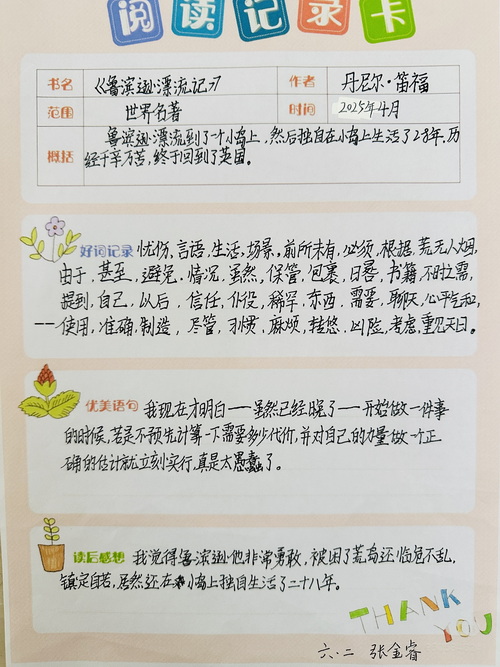 阅读记录卡
书名 《鲁滨逊漂流记》 作者 丹尼尔·笛福
范围 世界名著 时间 2025年4月
概括 鲁滨逊漂流到了一个小岛上,然后独自在小岛上生活了28年.历
经千辛万苦,终于回到了英国。
好词记录 忧伤,言语,生活,场景,前所未有,必须,根据,荒无人烟,
由于,甚至,避免,情况,虽然,保管,包裹,日晷,书籍,不时之需,
提到,自己,从后,信任,仆役,稀罕,东西,需要,聊天,心平气和,
一一使用,准确,制造,尽管,习惯,麻烦,挂悠,凶险,考虑,重见天日。
优美语句 我现在才明白——虽然已经晚了——开始做一件事
的时候,若是不预先计算一下需要多少代价,并对自己的力量做一个正
确的估计就立刻实行,真是太愚蠢了。
读后感想 我觉得鲁滨逊他非常勇敢,被困了荒岛还临危不乱,
镇定自若,居然还在小岛上独自生活了二十八年。
THANK
YOU
六·二 张金睿